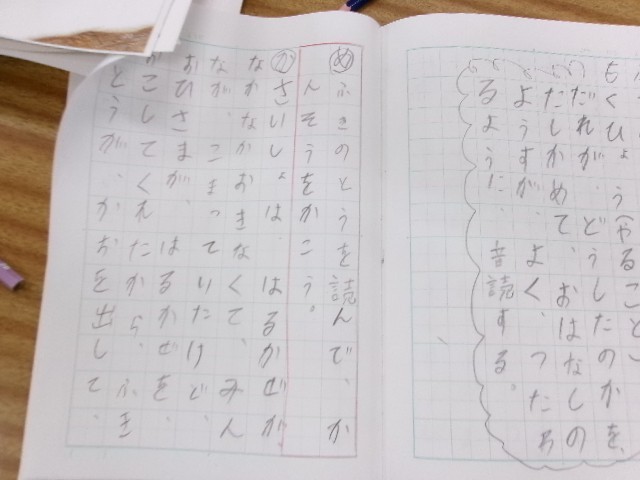 もくひょう(やること
だれが、どうしたのかを
たしかめて、おはなしの
ようすが、よく、つた
るように、音読する。
め ふきのとうを読んで、か
んそうをかこう。
か さいしょは、はるかぜが
なかなかおきなくて、みん
なが、こまっていたけど、
おひさまが、はるかぜを、
こしてくれたから、ふき
とうが、かおを出して、